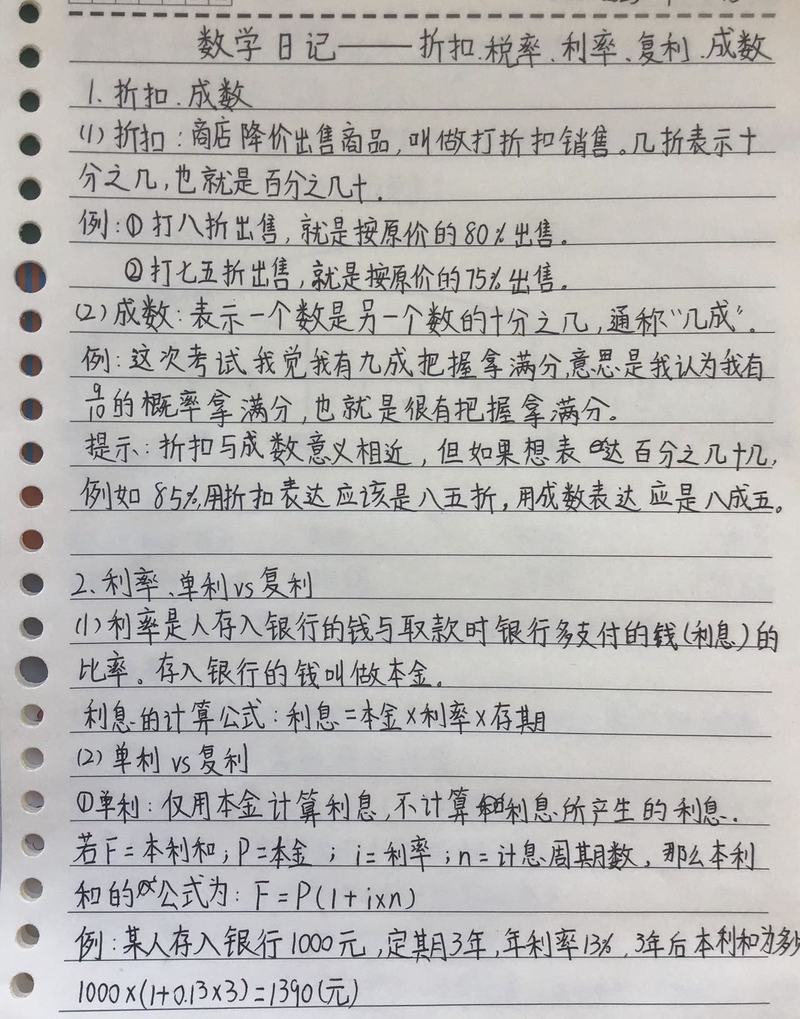 数学日记——折扣、税率、利率、复利、成数
1、折扣、成数
(1)折扣：商店降价出售商品，叫做打折扣销售。几折表示十
分之几，也就是百分之几十．
例：①打八折出售，就是按原价的80％出售。
②打七五折出售，就是按原价的75％出售。
(2)成数：表示一个数是另一个数的十分之几，通称“几成”．
例：这次考试我觉我有九成把握拿满分，意思是我认为我有
9/10的概率拿满分，也就是很有把握拿满分。
提示：折扣与成数意义相近，但如果想表达百分之几十几，
例如85％，用折扣表达应该是八五折，用成数表达应是八成五。
2、利率、单利vs复利
(1)利率是人存入银行的钱与取款时银行多支付的钱(利息)的
比率。存入银行的钱叫做本金。
利息的计算公式：利息=本金×利率×存期
(2)单利vs复利
①单利：仅用本金计算利息，不计算利息所产生的利息．
若F=本利和；P=本金；i=利率；n=计息周期数，那么本利
和的公式为：F=P(1+i×n)
例：某人存入银行1000元，定期3年，年利率13％，3年后本利和为多少
1000×(1+0.13×3)=1390(元)